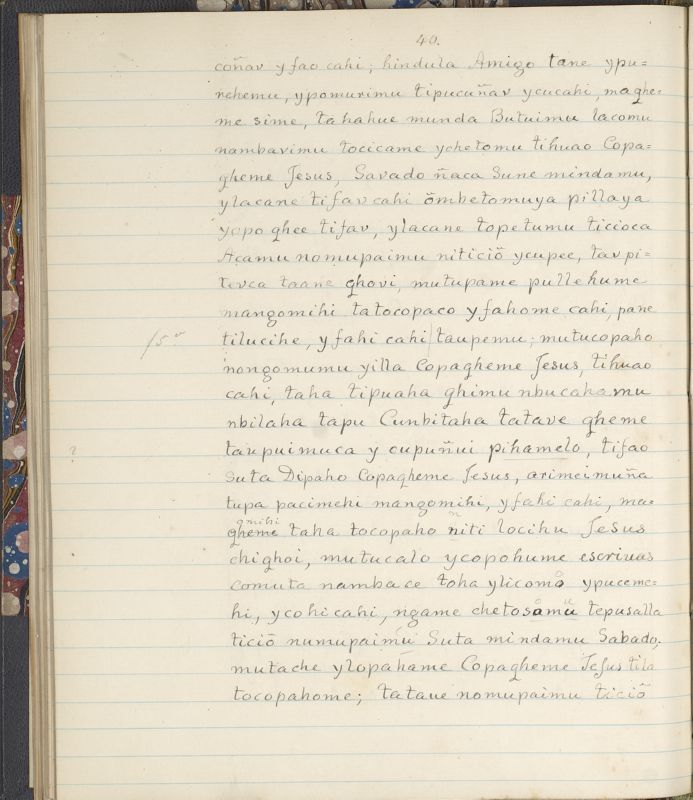 40.
coñar yfao cahi; hindula Amigo tane ypu=
nchemu, ypomurimu tipucuñav ycucahi, maghe=
me sime, tahahue munda Butuimu lacomu
nambavimu tocicame ychetomu tihuao Copa=
gheme Jesus, Savado ñaca sune mindamu,
ylacane tifav cahi õmbetomuya pillaya
yopoghee tifav, ylacane topetumu ticioca
Acamu nomupaimu niticiõ ycupee, tavpi=
tevca taane ghovi, mutupame pullehume
mangomihi tatocopaco yfahome cahi, pane
15 v
tilucihe, yfahi cahi taupemu; mutucopaho
nongomumu yilla Copagheme Jesus, tihuao
cahi, taha tipuaha ghimu nbucahamu
nbilaha tapu Cunbitaha tatave gheme
?
taupuimuca y cupuñui pihamelo, tifao
suta Dipaho Copagheme Jesus, arimeimuña
tupa pacimehi mangomihi, yfahi cahi, ma=
gmihi
gheme taha tocopaho niti locihu Jesus
chighoi, mutucalo ycopohume escrivas
comuta nambace toha ylicomo ypuceme=
hi, ycohicahi, ngame chetosamu tepusalla
ticiõ numupaimu Suta mindamu Sabado;
mutache ylopahame Copagheme Jesus tila
tocopahome; tataue nomupaimu ticiõ